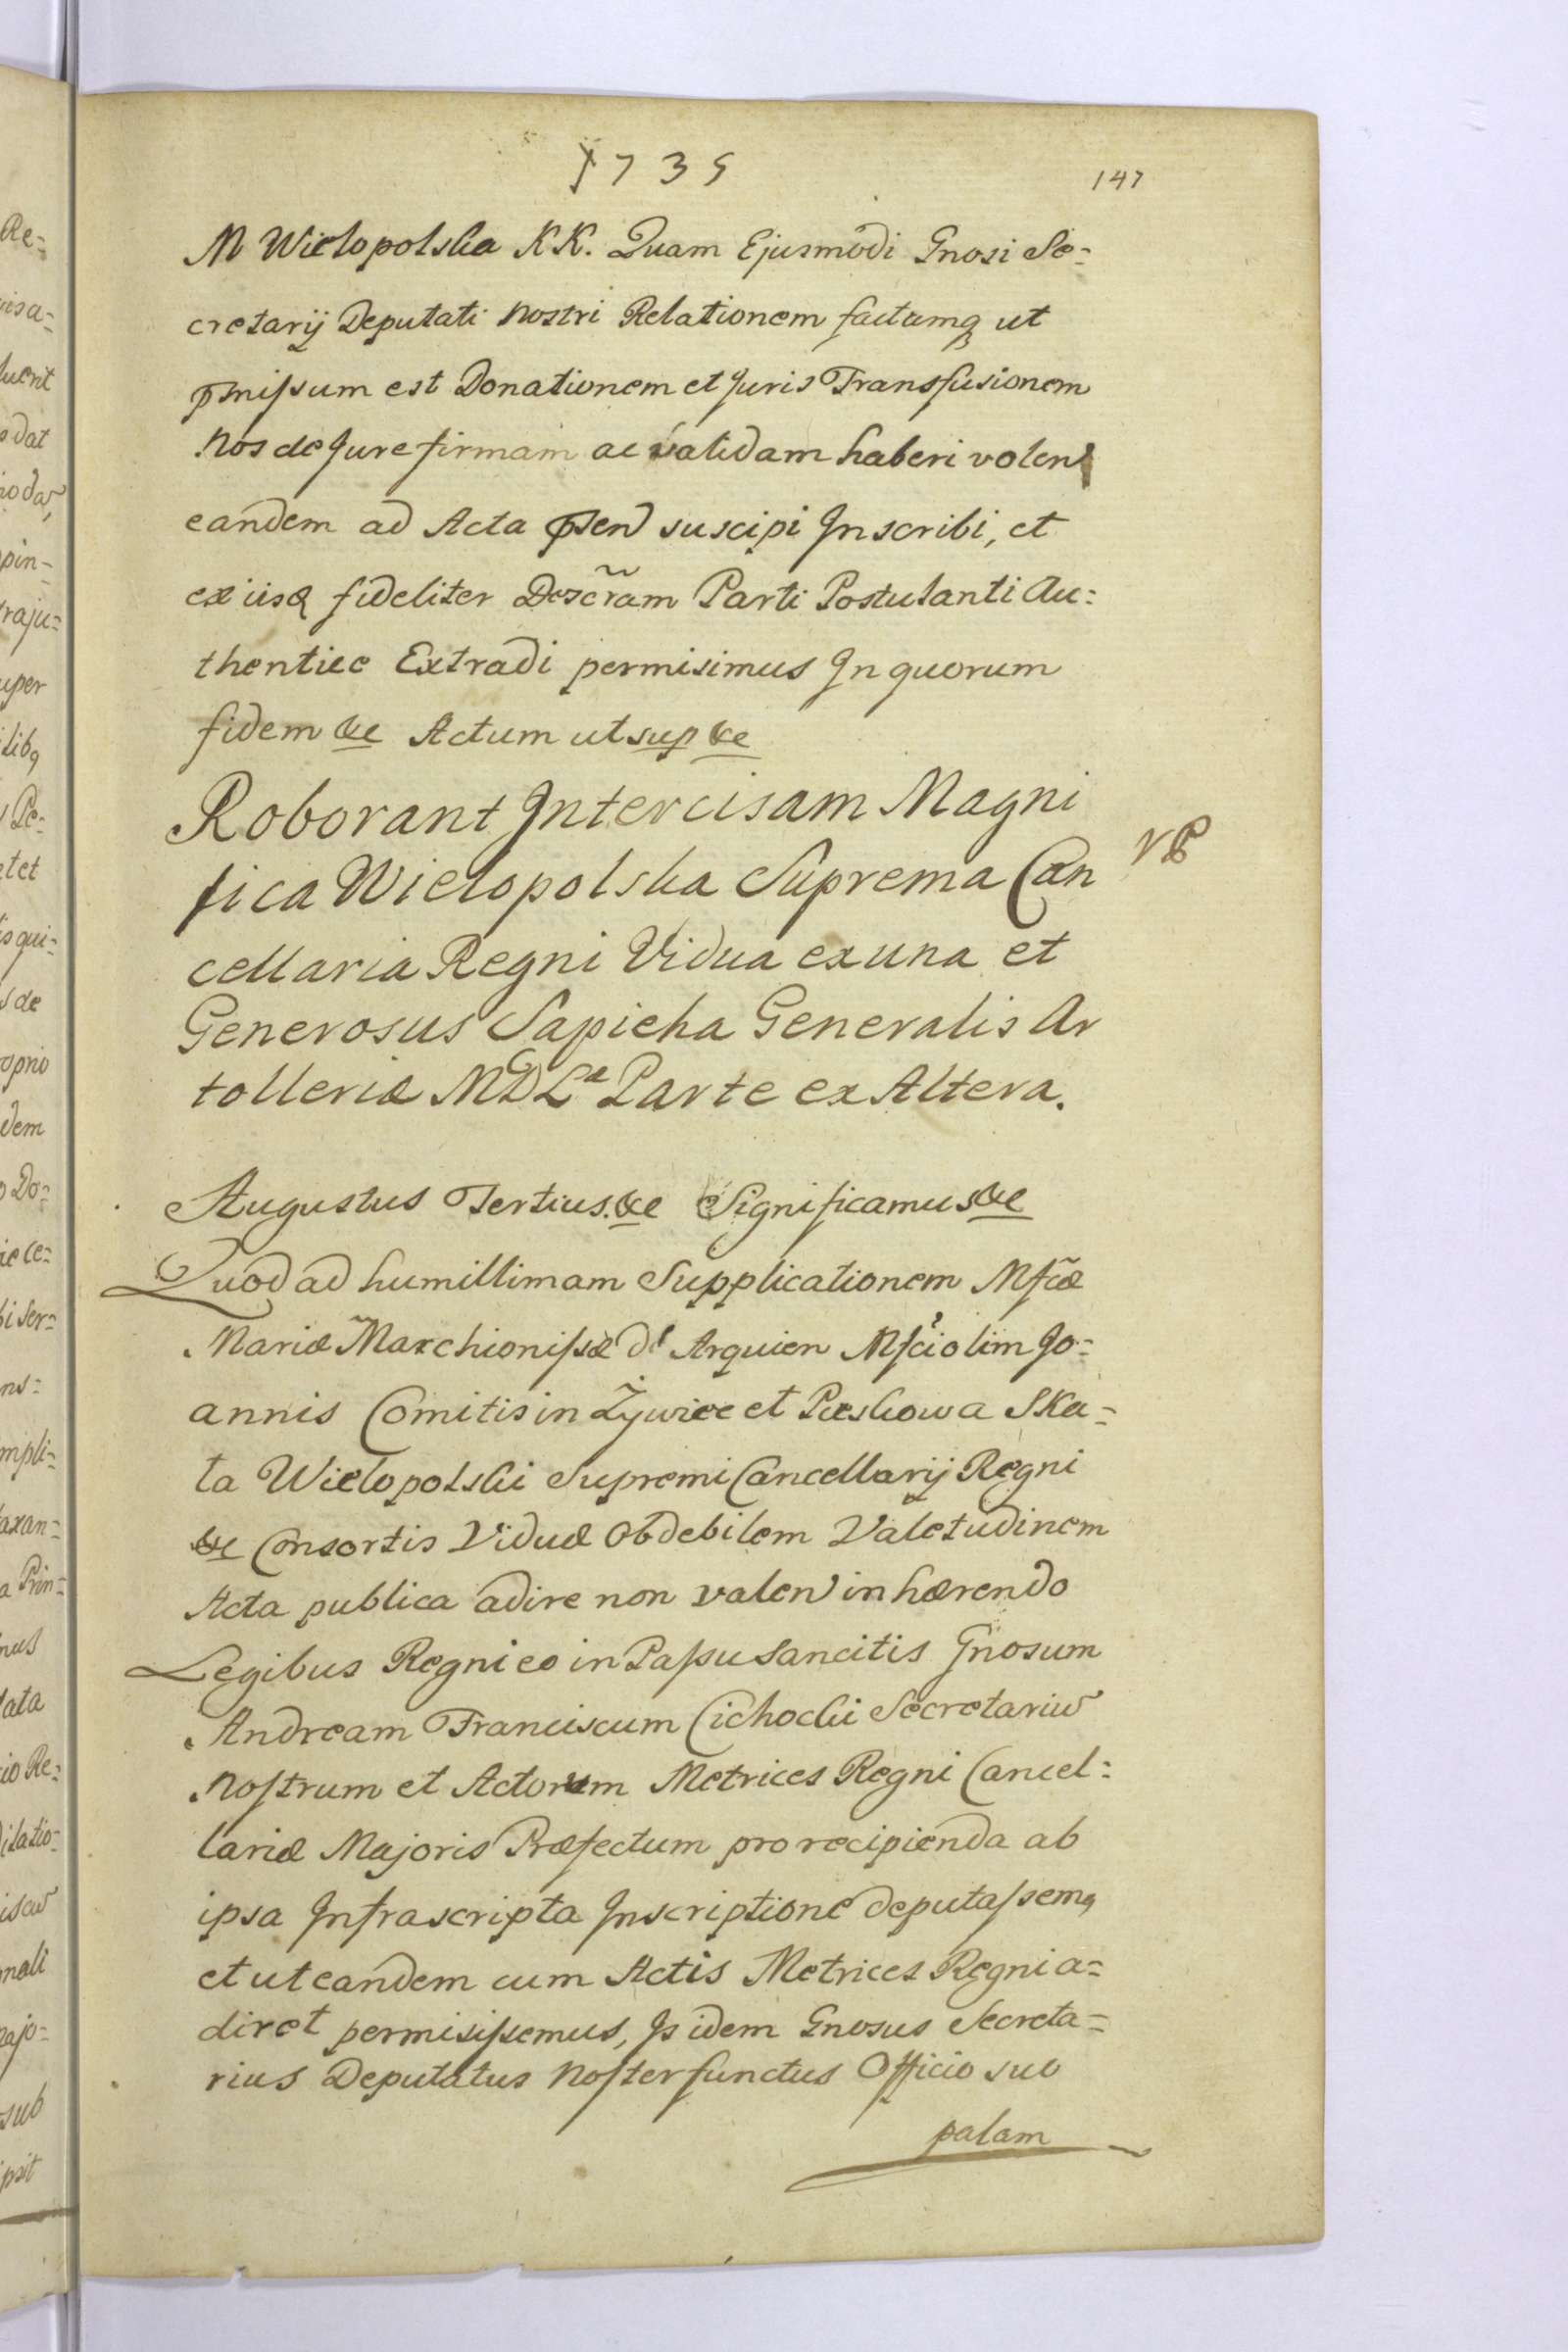 1735
147
M Wielopolska KK. Quam Ejusmodi Gnosi Se=
cretarij Deputati Nostri Relationem factamq ut
pmissum est Donationem et Juris Transfusionem
Nos de Jure firmam ac validam haberi volen
eandem ad Acta psen suscipi Inscribi, et
ex iisd fideliter Descr̃am Parti Postulanti Au=
thentice Extradi permisimus In quorum
fidem &c Actum ut sup &c
Roborant Intercisam Magni
fica Wielopolska Suprema Can
cellaria Regni Vidua ex una et
Generosus Sapieha Generalis Ar
tolleriæ MDL Parte ex Altera.
Augustus Tertius &c Significamus &c
Quod ad humillimam Supplicationem Mfcæ
Mariæ Marchionissæ de Arquien Mfci olim Jo=
annis Comitis in Żywiec et Pieskowa Ska=
ta Wielopolski Supremi Cancellarij Regni
&c Consortis Viduæ Ob debilem Valetudinem
Acta publica adire non valen inhærendo
Legibus Regni eo in Passu Sancitis Gnosum
Andream Franciscum Cichocki Secretariu
Nostrum et Actorum Metrices Regni Cancel=
lariæ Majoris Præfectum pro recipienda ab
ipsa Infrascripta Inscriptione deputassem9
et ut eandem cum Actis Metrices Regni a=
diret permisissemus, Is idem Gnosus Secreta=
rius Deputatus Noster functus Officio suo
palam